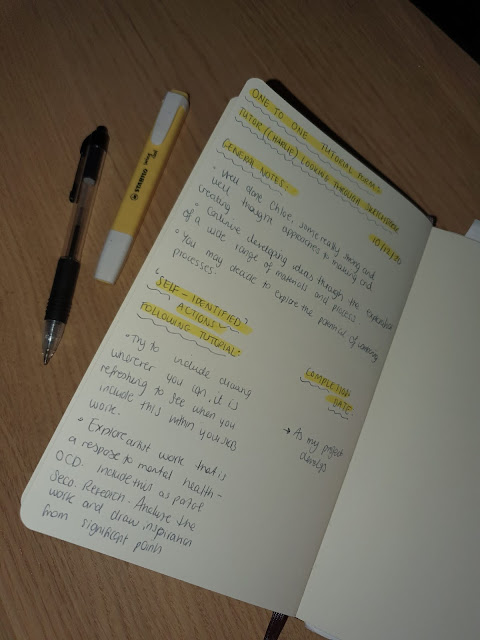 ONE TO ONE TUTORIAL FORMS
TUTOR (CHARLIE) LOOKING THROUGH SKETCHBOOK
GENERAL NOTES:
• Well done Chloe, some really strong and
well thought approaches to making and
creating
• Continue developing ideas through the exploration
of a wide range of materials and process
• You may decide to explore the potential of
processes.
"SELF-IDENTIFIED"
ACTIONS
FOLLOWING TUTORIAL:
COMPLETION
DATE
• Try to include drawing
wherever you can, it is
refreshing to see when you
include this within
work.
→ As my project
develops
• Explore artist work that is
a response to mental health -
OCD. Include this as part of
Seco. Research. Analyse the
work and draw inspiration
from significant points
STABILO